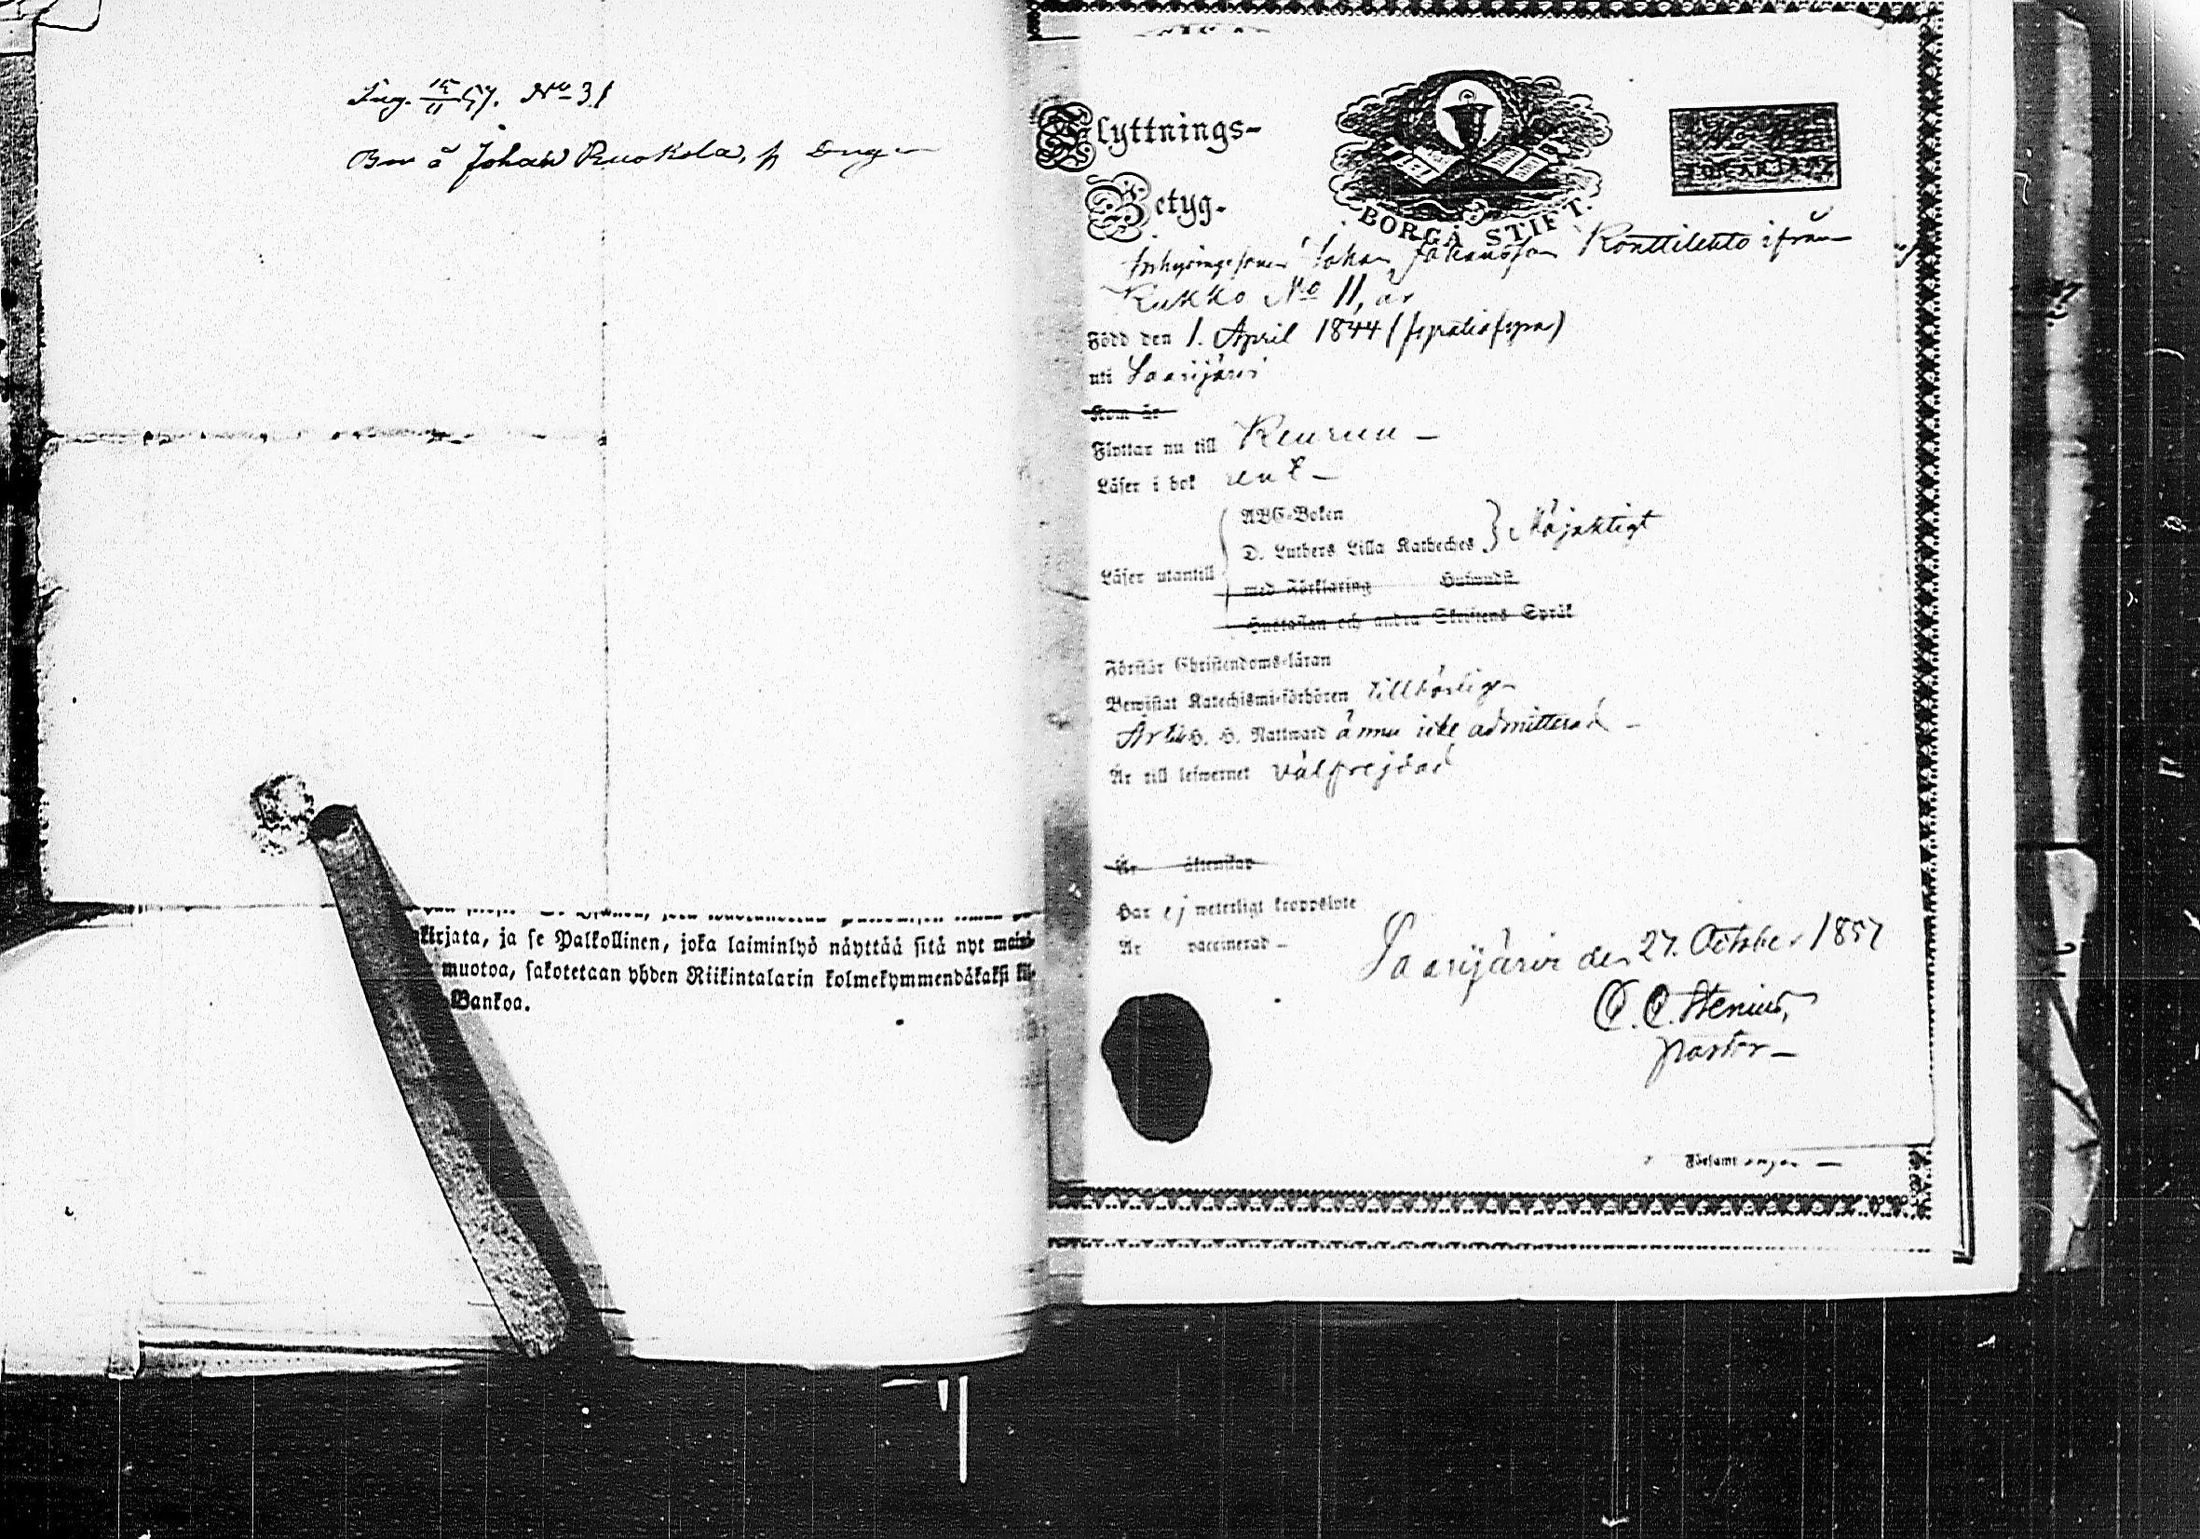 Ing. 15/11 57. No 31
Johan Ruokola,
kirjata, ja se Palkollinen, joka laiminlyö näyttää sitä nyt
muotoa, sakotetaan yhden Riikintalarin kolmekymmendäkaksi
Bankoa.
Flyttnings-
Betyg.
BORGÅ STIFT.
Johan Johansson Konttilehto ifrån
Kukko No 11, är
Född den 1. April 1844
uti Saarijärvi
Kom år
Flyttar nu till Keuruu –
Läser i bok rent –
ABC-Boken
D. Luthers Lilla Katheches } Nöjaktigt
Läser utantill
med Förklaring Hufwudst.
Hustaflan och andra Skriftens Språk
Förstår Christendoms-läran
Bewistat Katechismi-förhören tillbörligen
Är till H. H. Nattward ännu icke admitterad –
Är till lefwernet välfrejdad
Är äktenskap
Har ej weterligt kroppslyte
Är vaccinerad –
Saarijärvi den 27. October 1857
C. C. Stenius,
pastor –